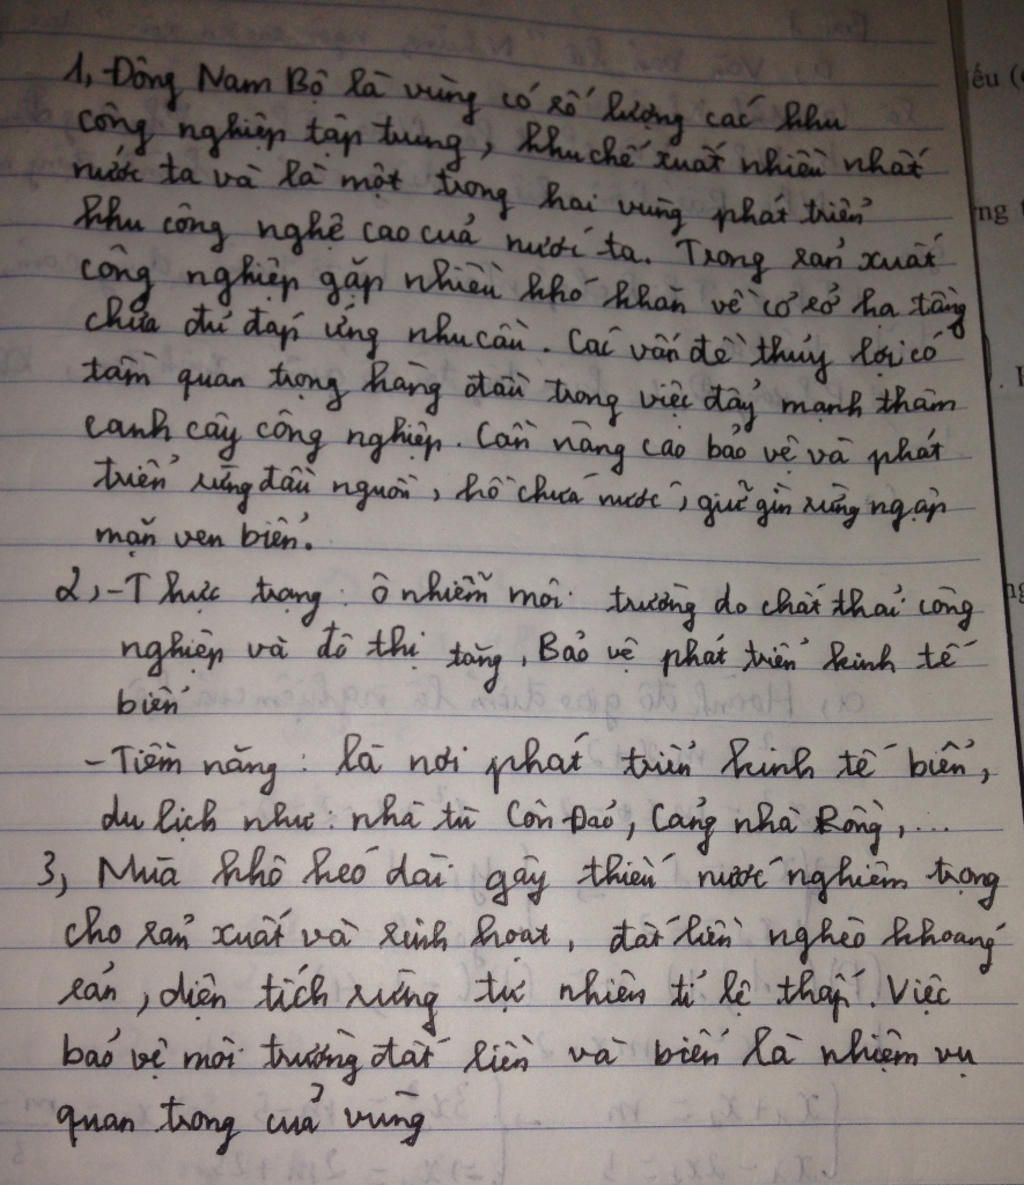 1, Đông Nam Bộ là vùng có số lượng các khu
công nghiệp tập trung, khu chế xuất nhiều nhất
nước ta và là một trong hai vùng phát triển
khu công nghệ cao của nước ta. Trong sản xuất
công nghiệp gặp nhiều khó khăn về cơ sở hạ tầng
chưa đủ đáp ứng nhu cầu. Các vấn đề thủy lợi có
tầm quan trọng hàng đầu trong việc đẩy mạnh thâm
canh cây công nghiệp. Cần nâng cao bảo vệ và phát
triển rừng đầu nguồn, hồ chứa nước, giữ gìn rừng ngập
mặn ven biển.
2, - Thực trạng: ô nhiễm môi trường do chất thải công
nghiệp và đô thị tăng, Bảo vệ phát triển kinh tế
biển
- Tiềm năng: là nơi phát triển kinh tế biển,
du lịch như: nhà tù Côn Đảo, Cảng nhà Rồng,...
3, Mùa khô kéo dài gây thiếu nước nghiêm trọng
cho sản xuất và sinh hoạt, đất liền nghèo khoáng
sản, diện tích rừng tự nhiên tỉ lệ thấp. Việc
bảo vệ môi trường đất liền và biển là nhiệm vụ
quan trong của vùng